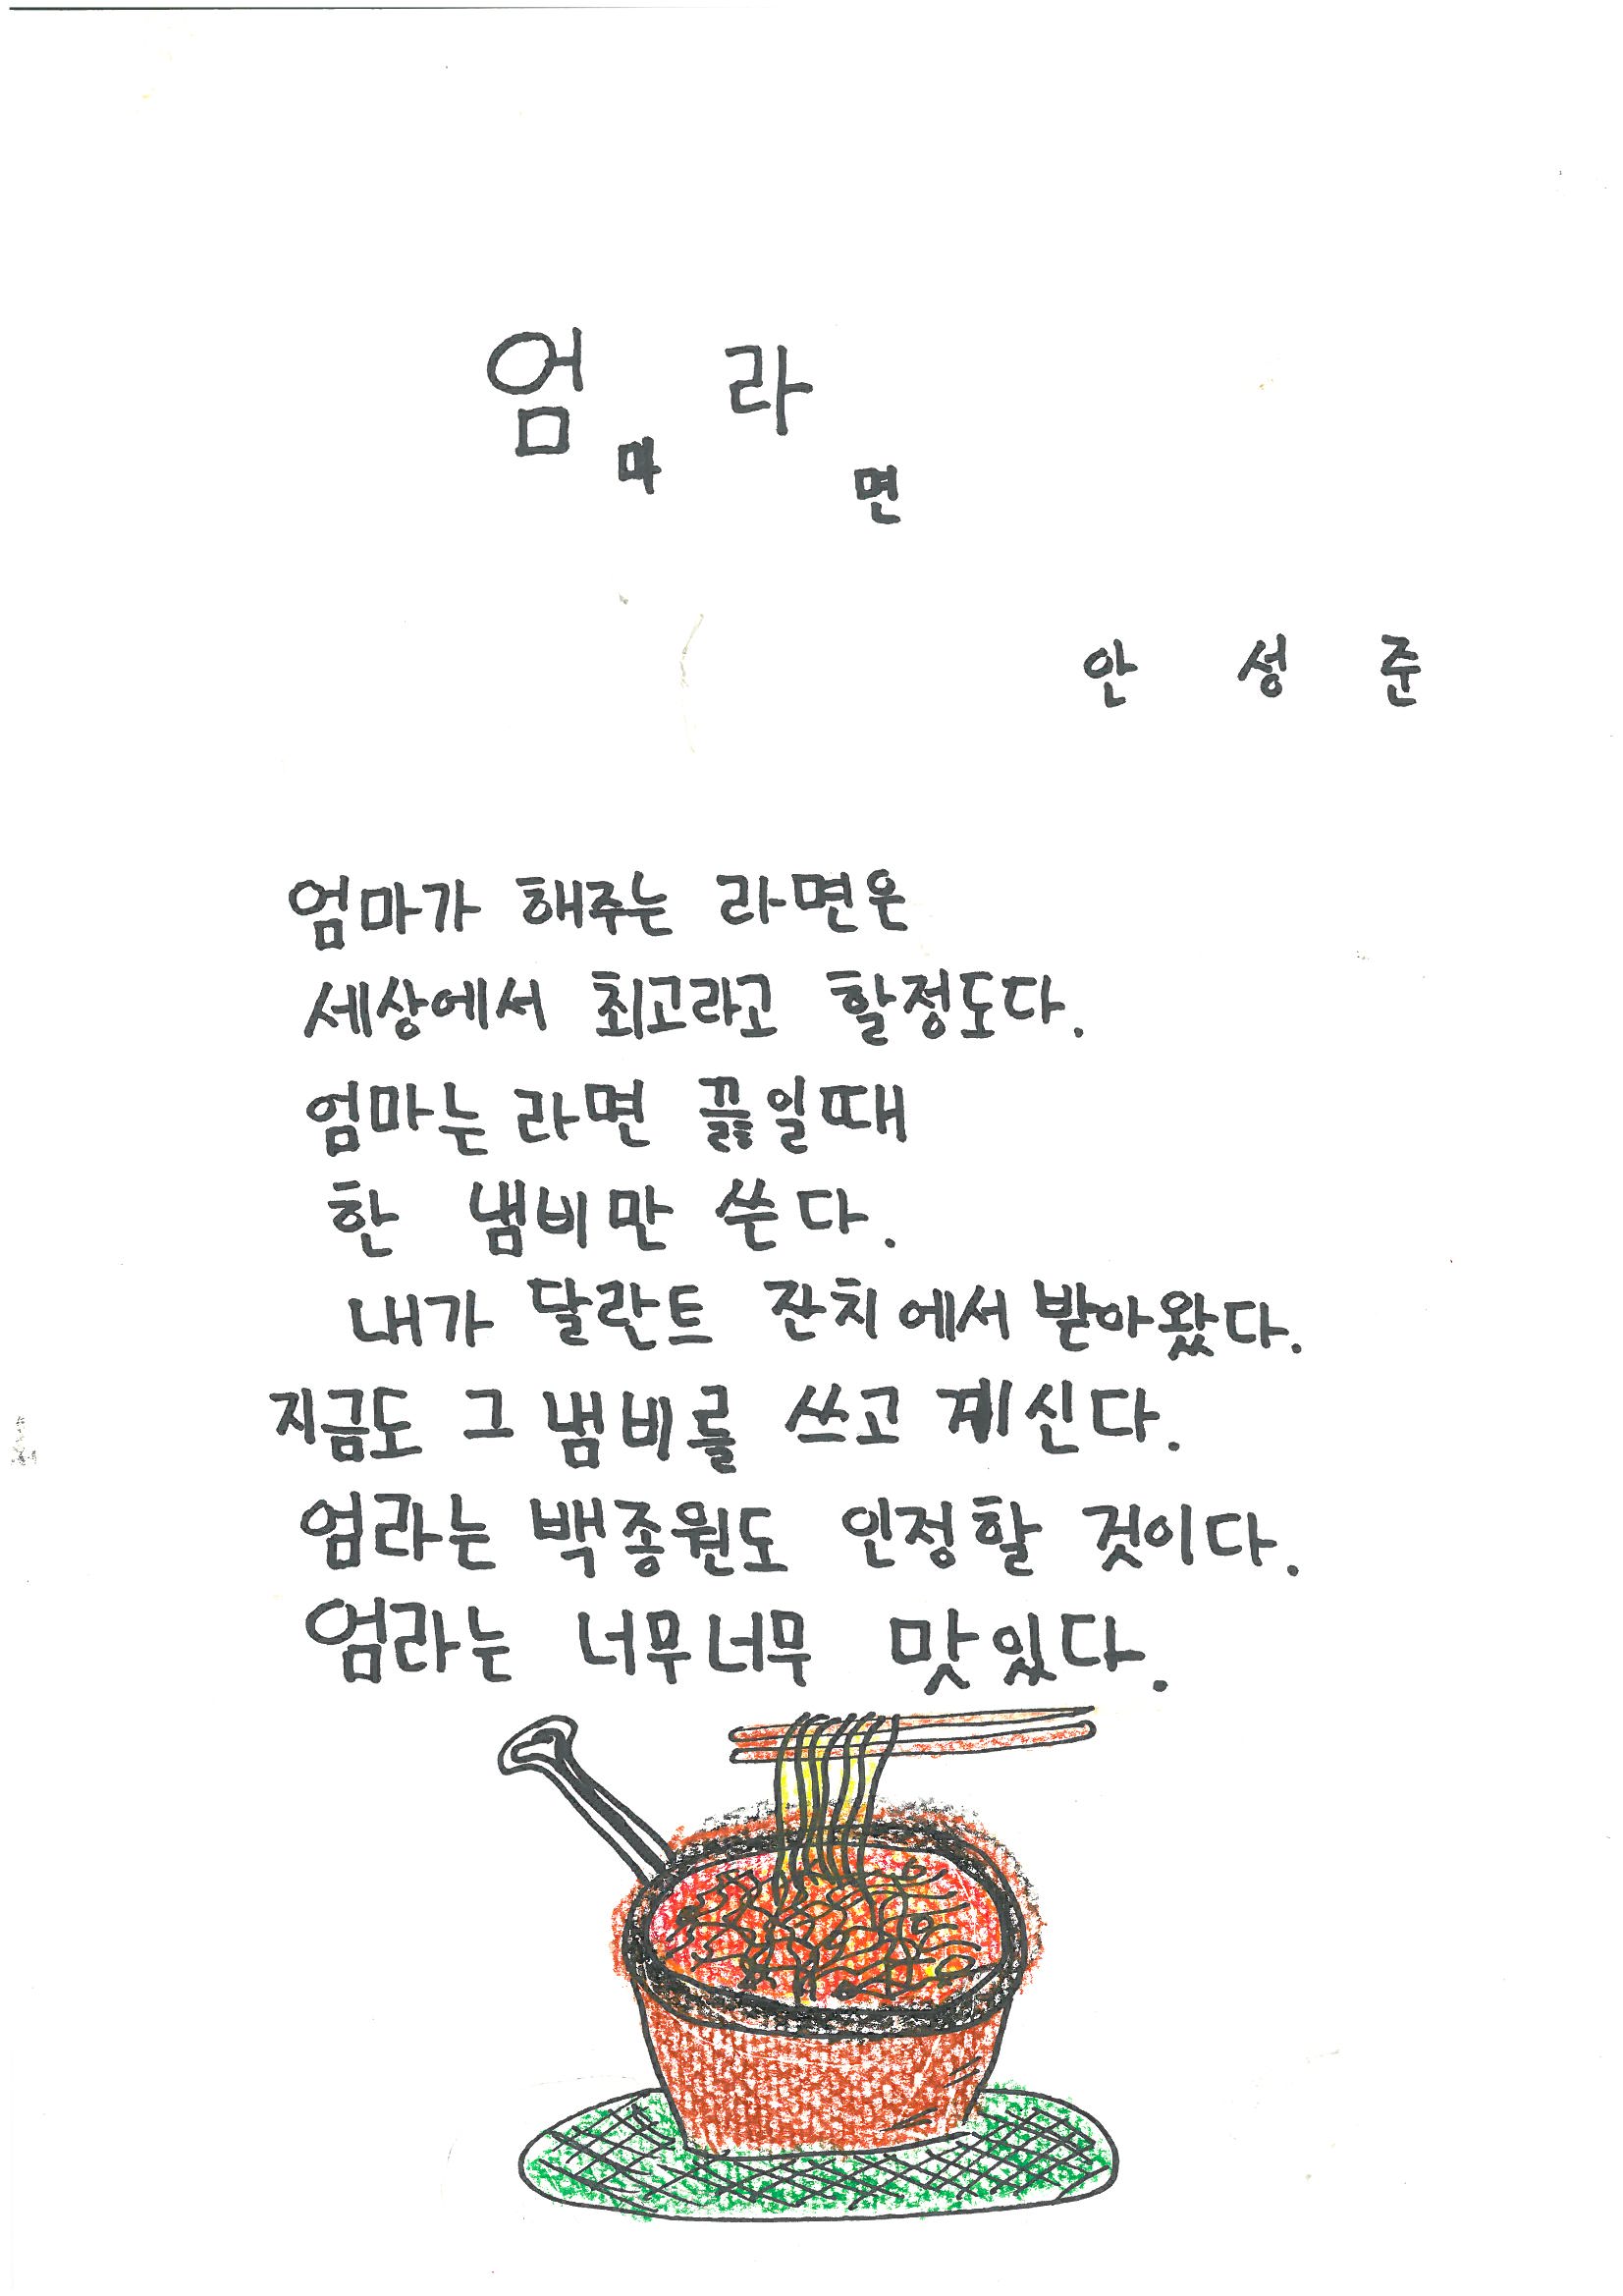 엄마 라면
안 성 준
엄마가 해주는 라면은
세상에서 최고라고 할정도다.
엄마는 라면 끓일때
한 냄비만 쓴다.
내가 달란트 잔치에서 받아왔다.
지금도 그 냄비를 쓰고 계신다.
엄라는 백종원도 인정할 것이다.
엄라는 너무너무 맛있다.